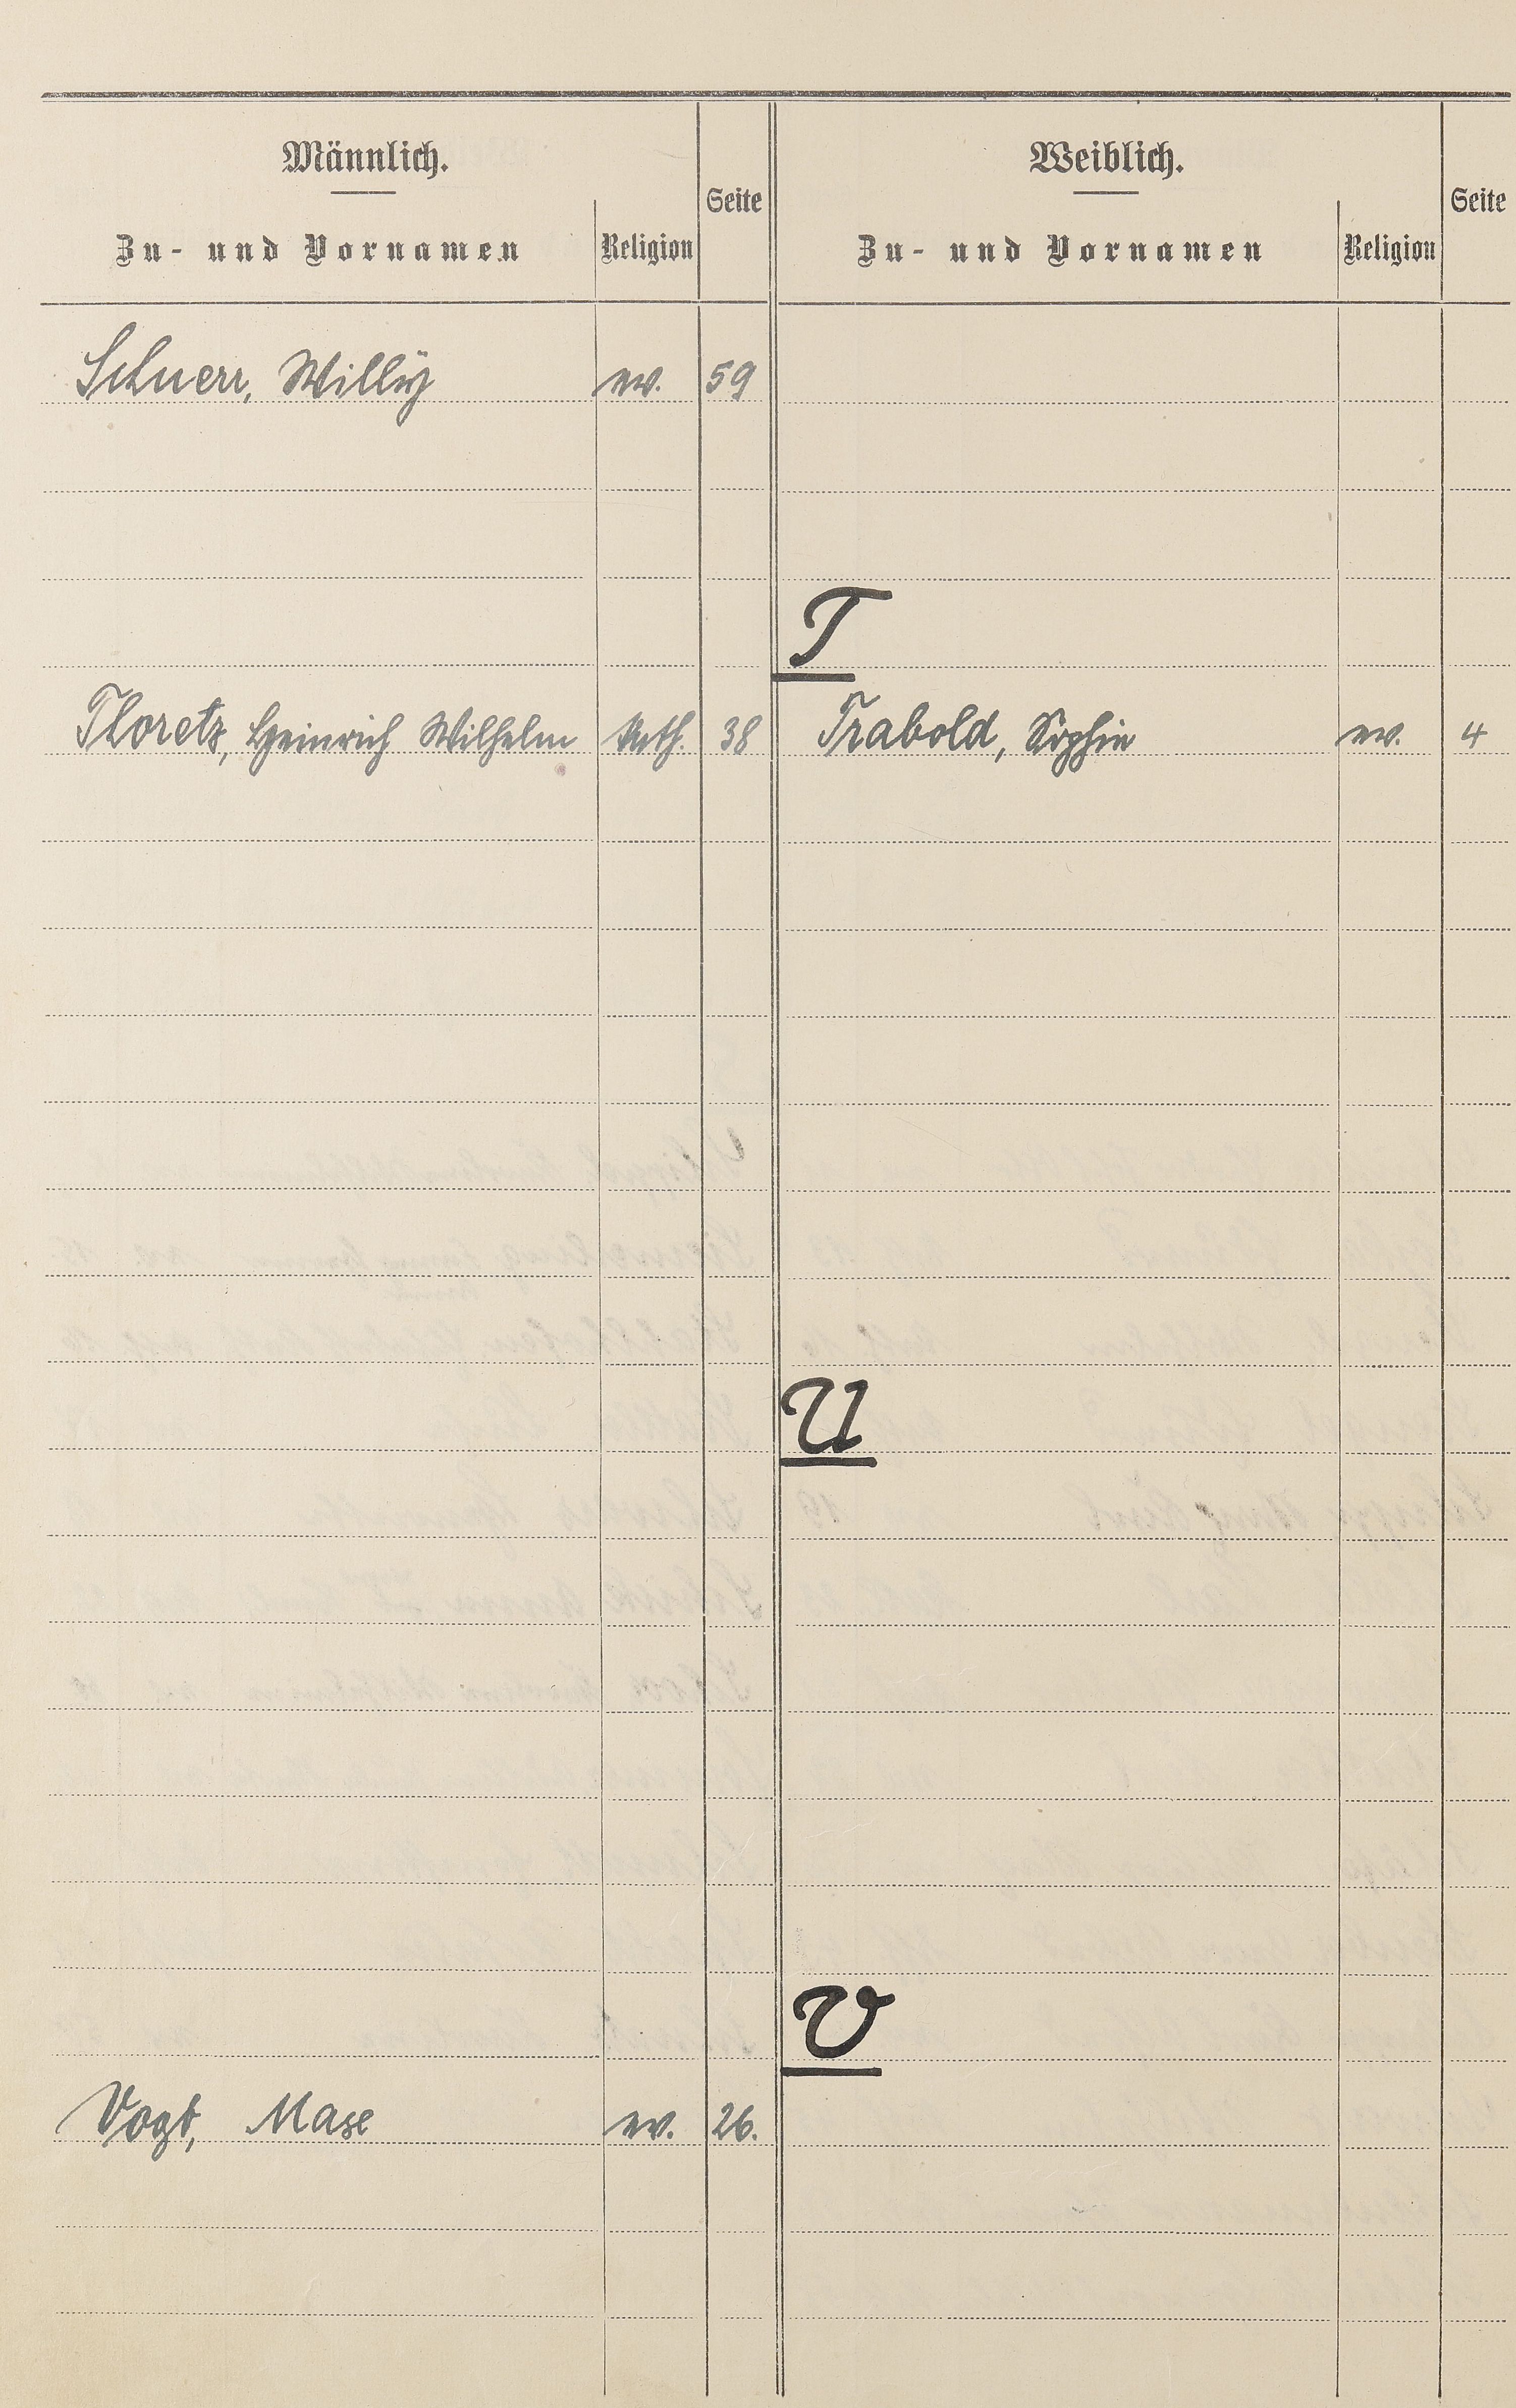 Männlich.
Weiblich.
Seite
Seite
Zu- und Vornamen
Religion
Zu- und Vornamen
Religion
Scherr, Willy ev. 59
T
Thoretz, Heinrich Wilhelm kath. 38
Trabold, Sophie ev. 4
U
V
Vogt, ev. 26.